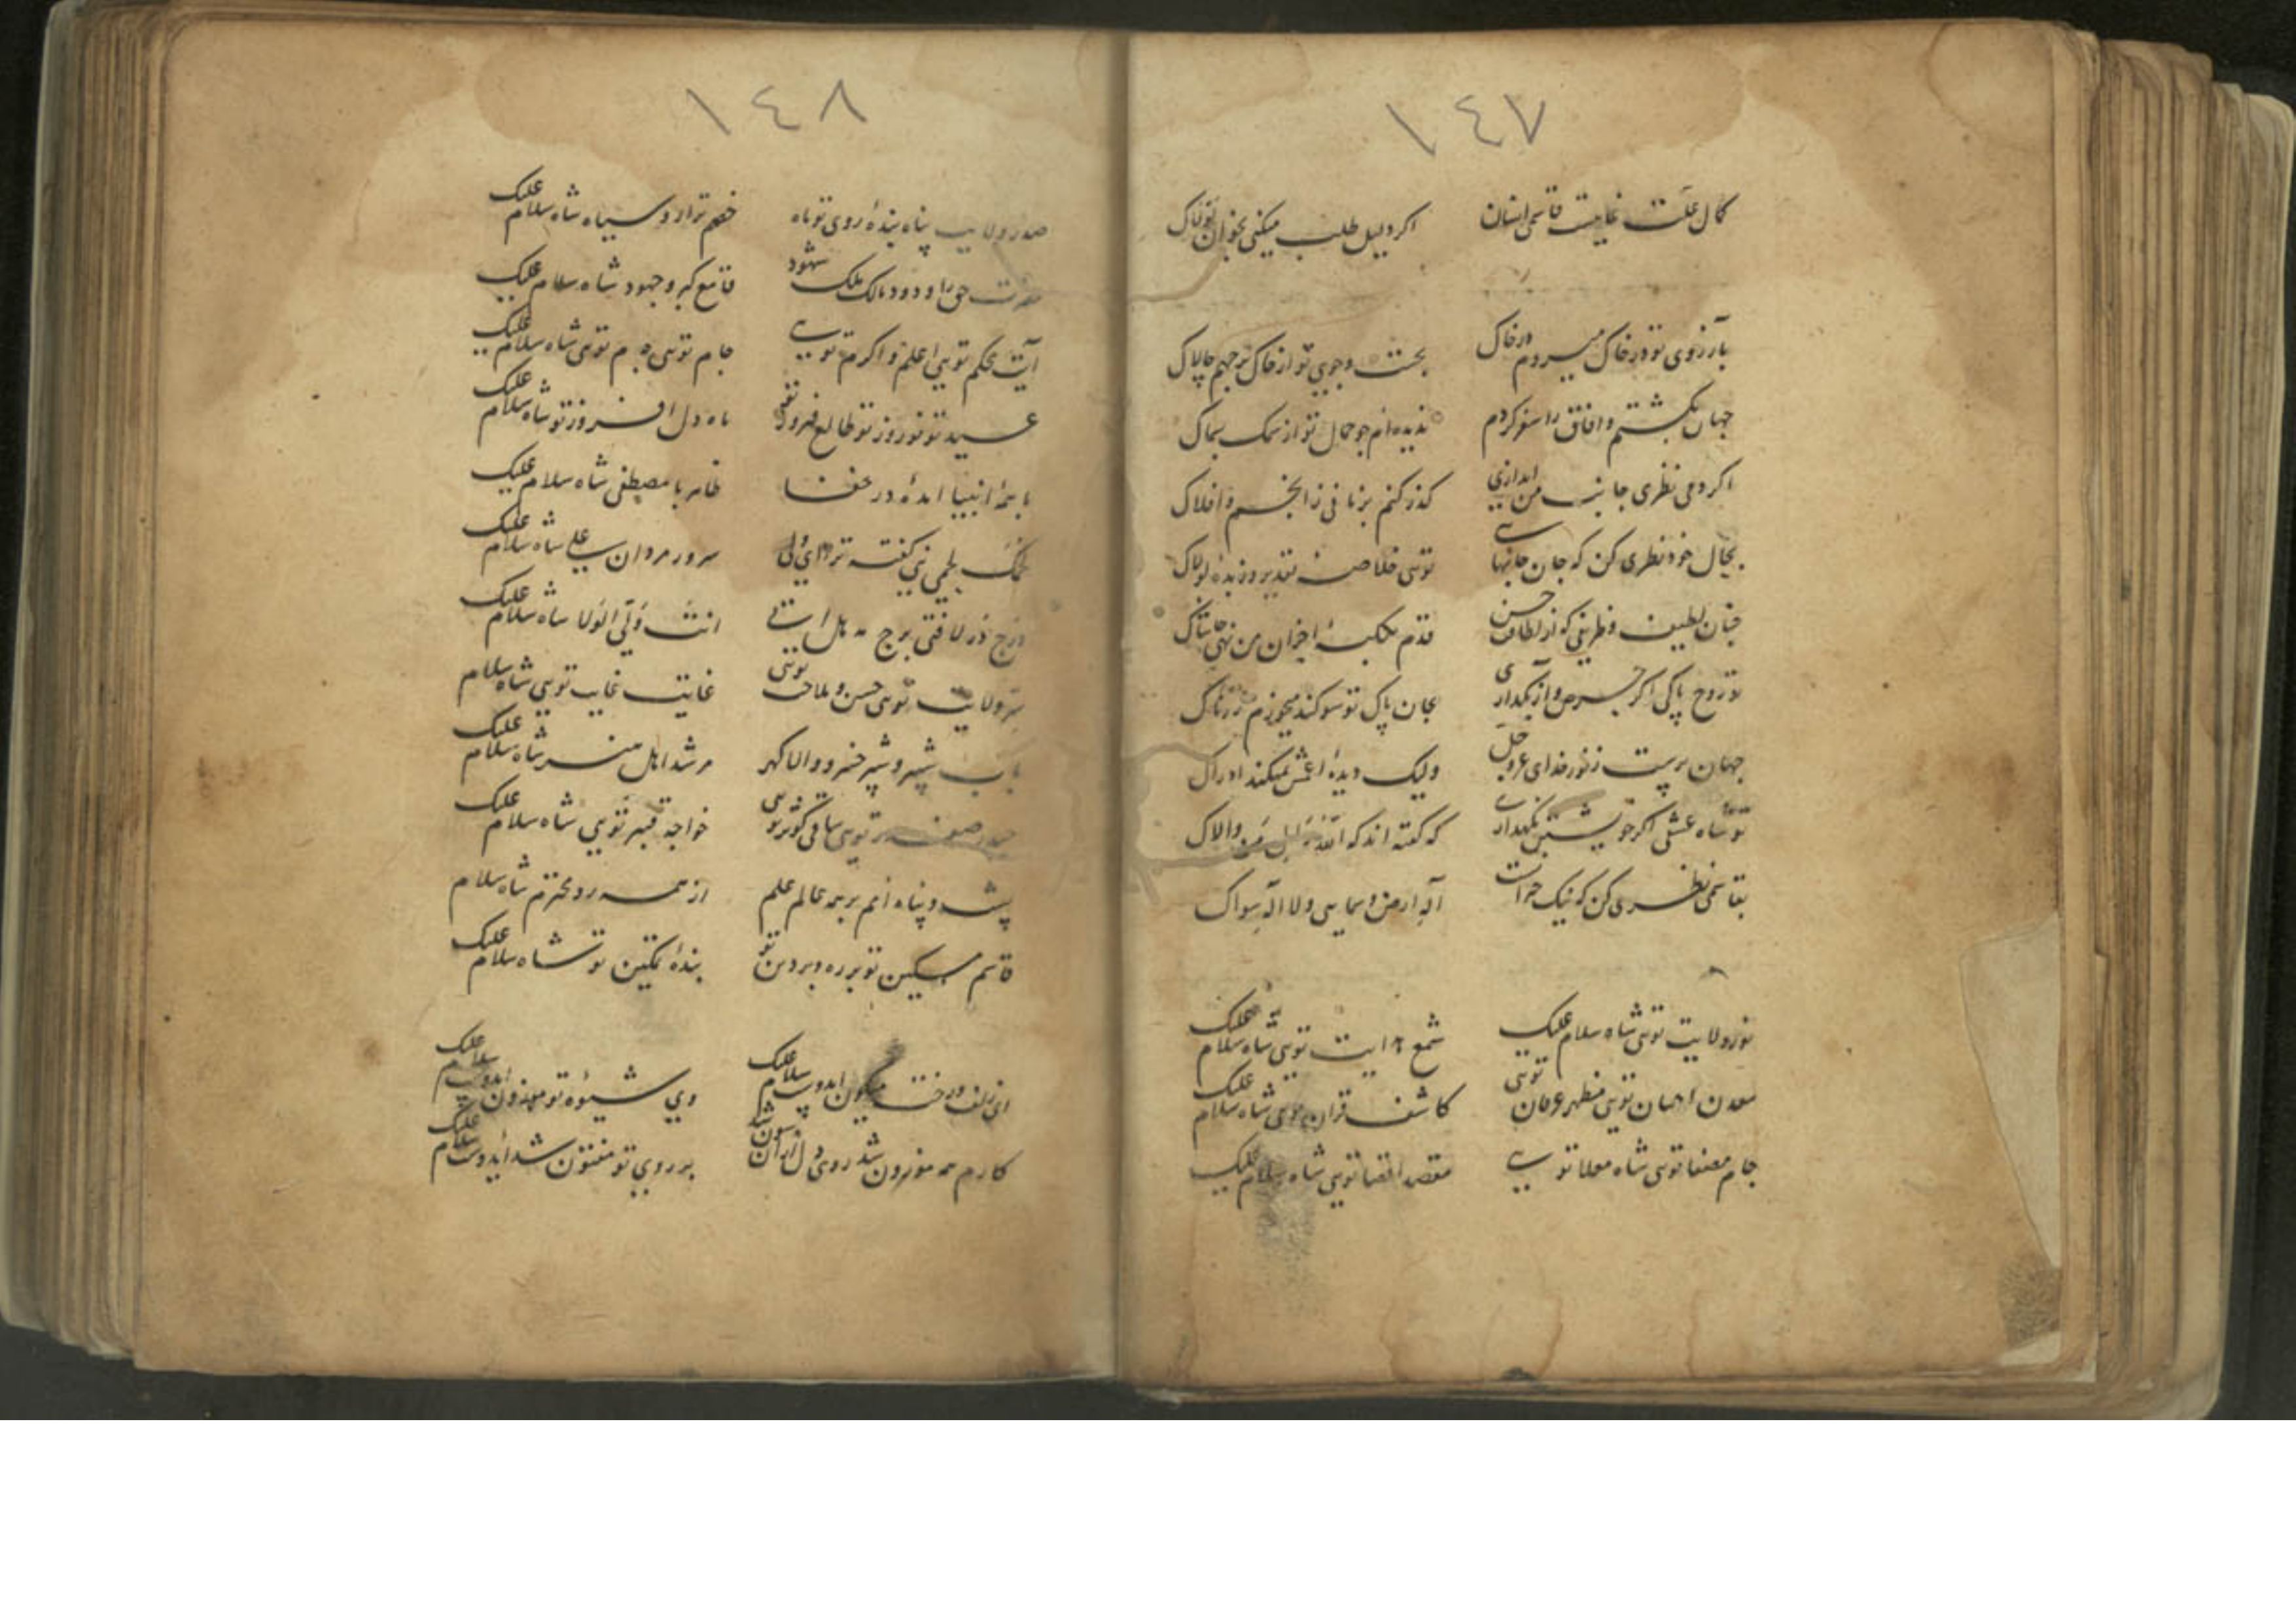 ١٤٧
کمال علت غایت قاسمی انسان اکر دلیل طلب میکنی بخوان لولاک
بآرزوی تو در خاک میروم در خاک بجست وجوی تو از خاک برجهم چالاک
جهان بکشتم و افاق را سفر کردم ندیده‌ام جو جمال تو از سمک بسماک
اکر دمی نظری جانب من اندازی کذر کنم بزمانی ز انجم و افلاک
بحال خود نظری کن که جان جانهایی تویی خلاصه تقدیر و زبده لولاک
چنان لطیف و ظریفی که از لطافت حسن قدم بکلبه احزان من نهی حاشاک
تو روح پاکی اکر حرص و از بکذاری بجان پاک تو سوکند میخورم
جهان پرست ز نور خدای عز وجل ولیک دیده اعمش نمیکند ادراک
تو شاه عشقی اکر خویشتن نکهداری که کفته‌اند که
بقاسمی نظری کن که نیک حیرانست آله ارض و سمایی ولا اله سواک
نور ولایت تویی شاه سلام علیک شمع هدایت تویی شاه سلام علیک
معدن احسان تویی مظهر عرفان تویی کاشف قران تویی شاه سلام علیک
جام مصفا تویی شاه معلا تویی مقصد اقصا تویی شاه سلام علیک
١٤٨
صدر ولایت پناه بنده روی تو ماه خصم ترا رو سیاه شاه سلام علیک
حضرت حق را ودود مالک ملک شهود قامع کبر و جهود شاه سلام علیک
آیت محکم تویی اعلم و اکرم تویی جام تویی جم تویی شاه سلام علیک
عید تو نوروز تو طالع فیروز تو ماه دل افروز تو شاه سلام علیک
با همه انبیا امده در خفا ظاهر با مصطفی شاه سلام علیک
لحمک لحمی نبی کفته ترا ای ولی سرور مردان علی شاه سلام علیک
درج در لافتی برج مه هل اتی انت ولی الولا شاه سلام علیک
سر ولایت تویی حسن و ملاحت تویی غایت غایت تویی شاه سلام
باب شبیر و شبر خسرو والا کهر مرشد اهل هنر شاه سلام علیک
حیدر صفدر تویی ساقی کوثر تویی خواجه قنبر تویی شاه سلام علیک
پشت و پناه امم بر همه عالم علم از همه رو محترم شاه سلام
قاسم مسکین تو بر ره و بر دین تو بنده تمکین تو شاه سلام علیک
ای زلف و رخت میکون ایدوست سلام علیک وی شیوه تو موزون ایدوست سلام علیک
کارم همه موزون شد روی دل ازان سون شد بر روی تو مفتون شد ایدوست سلام علیک